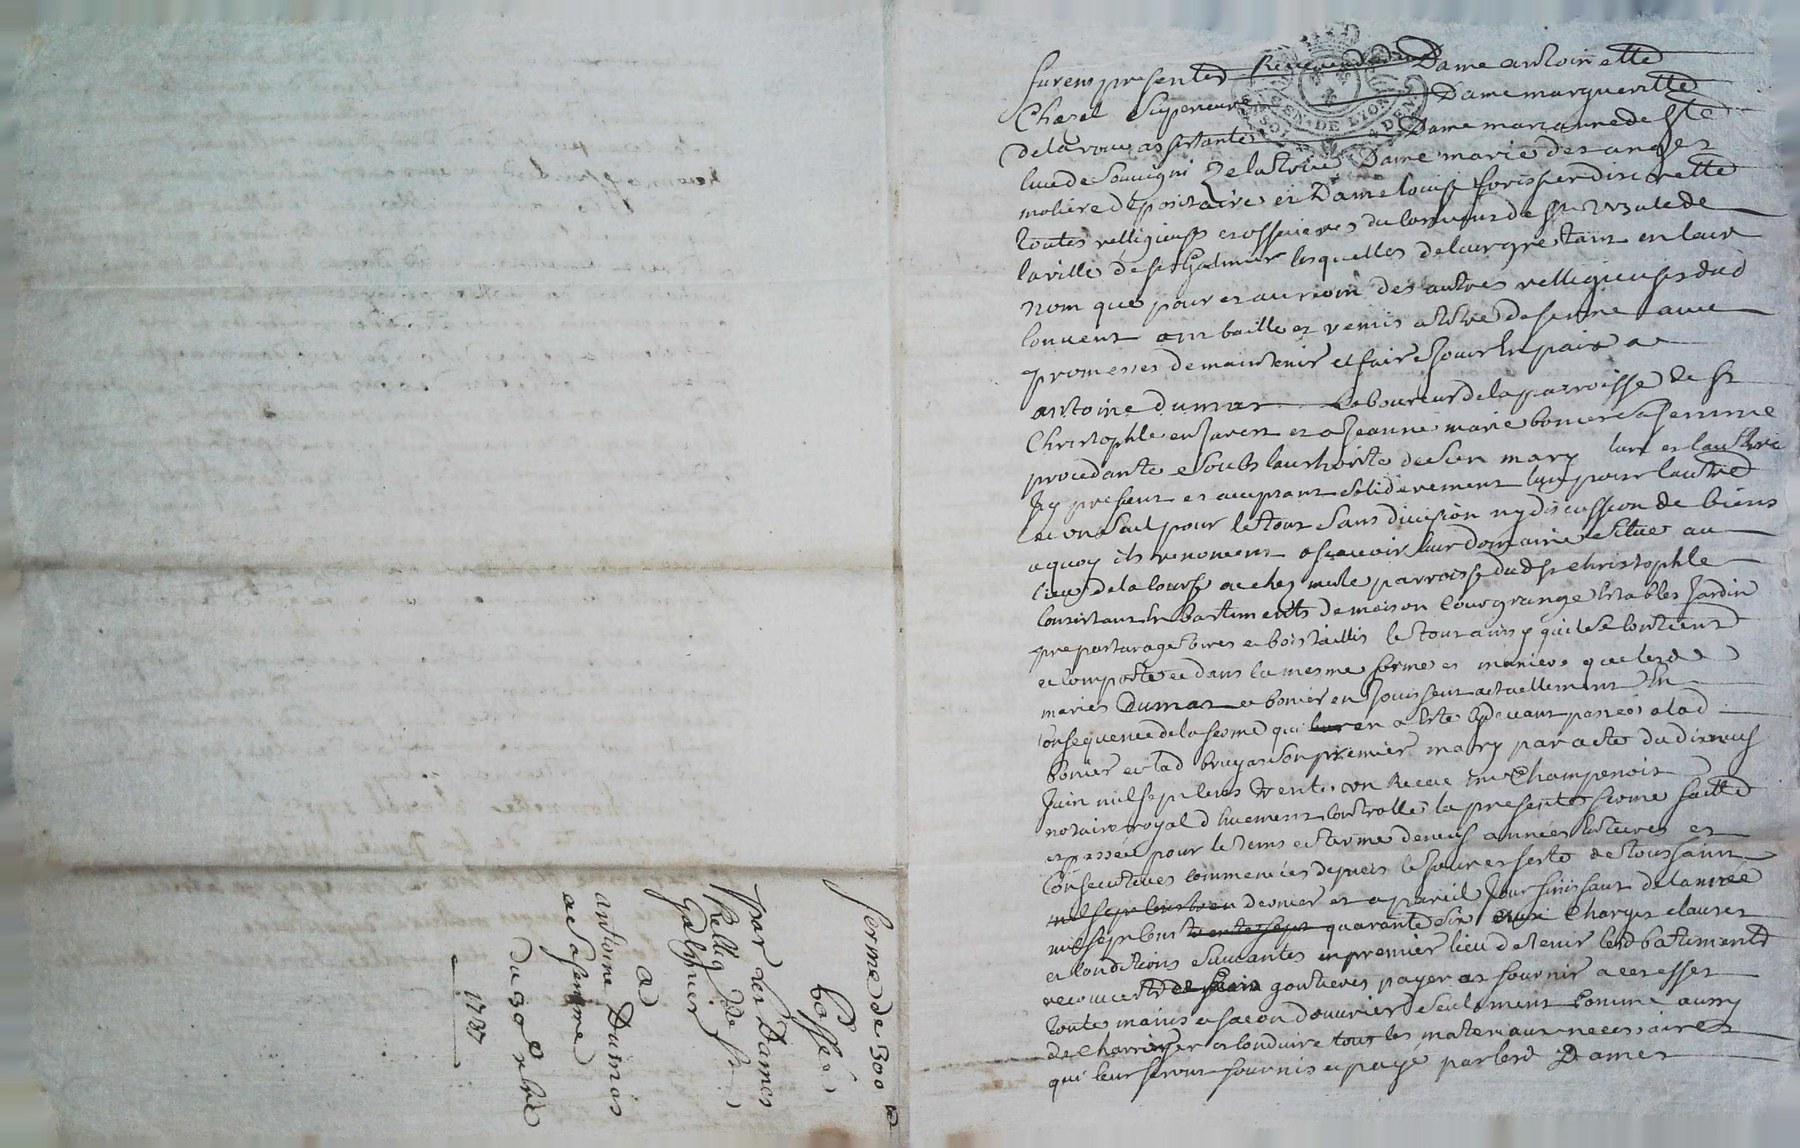 furent presentes Reverende Dame antoinette
Chazal Superieure Dame margueritte
de la roue assistante Dame marianne de ste
luce de Souvigni Zelatrice Dame marie des anges
moliere depositaire et Dame louise foris per discrette
toutes relligieuses professes du couvent de ste Ursule de
la ville de st Galmier lesquelles de leur gre tant en leur
nom que pour et au nom des autres relligieuses dud
Couvent ont baille et remis a titre de ferme avec
promesses de maintenir et faire Jouir En paix a
antoine dumas Laboureur de la parroisse de st
Christophle en Jarest et a Jeanne marie bonier sa femme
procedante Soubs lauthorite de Son mary
Icy present et acceptant Solidairement lun pour lautre lun et lauthre
et un Seul pour le tout Sans division ny discussion de biens
a quoy ils renoncent a scavoir leur domaine Situe au
lieu de la Course parroisse dud st christophle
Consistant En bastiments de maison Cour grange Estables Jardin
pre pasturage terres et bois taillis le tout ainsy quil Se Contient
et Comporte et dans la mesme forme et maniere que lesd
maries Dumas et bonier en Jouissent actuellement En
Consequence de la ferme qui leur en a Este Cy devant passee a lad
bonier et lad bruyas Son premier mary par acte du dixneuf
Juin mil sept cents trente Recue me Champenois
notaire royal duement Controlle la presente ferme faitte
et passee pour le tems et terme de neuf annees Entieres et
Consecutives commencees depuis le Jour et feste de toussaint
mil sept cent dernier et a pareil Jour finissant de lannee
mil sept cent trente sept quarante six aux Charges clauses
et Conditions Suivantes en premier lieu de tenir lesd batiments
recouverts gouttieres payer et fournir a cet effet
toute main et facon douvrier Seulement Comme aussy
de Charrier et Conduire tous les materiaux necessaires
qui leur seront fournis et paye par lesd Dames
ferme de 300 tt
passée
par les Dames
Rellig de st
Galmier
a
antoine Dumas
et sa femme
du 30e xbre
1737